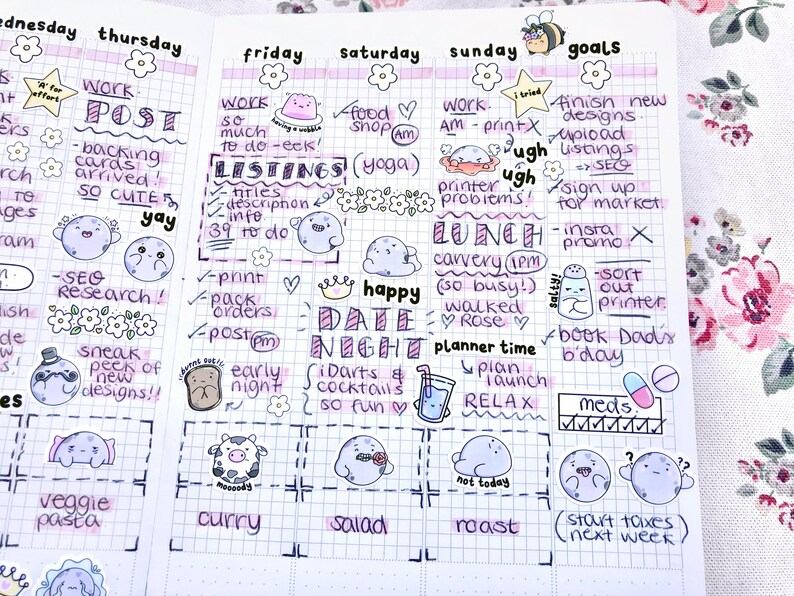 ednesday
'A' for
effort
thursday
WORK.
POST
- backing
cards
arrived!
SO CUTE
yay
- SEO
Research!
sneak
peek of
new
designs!!
veggie
pasta
friday
work
so
much
to do - eek!
having a wobble
LISTINGS
- titles
- description
- info
39 to do
- print
- pack
orders
- post pm
burnt out!
early
night
mooody
curry
saturday
food
shop
Am
(yoga)
happy
DATE
NIGHT
iDarts &
cocktails
so fun
salad
sunday
i tried
work.
AM - print X
ugh
ugh
printer
problems!
LUNCH
carvery 1PM
(so busy!)
walked
Rose
planner time
plan
launch
RELAX
not today
roast
goals
finish new
designs.
upload
listings
=> SEO
sign up
for market
- insta
promo.
X
salty!
- sort
out
printer
book Dad's
b'day
meds.
? ??
(start taxes
next week)